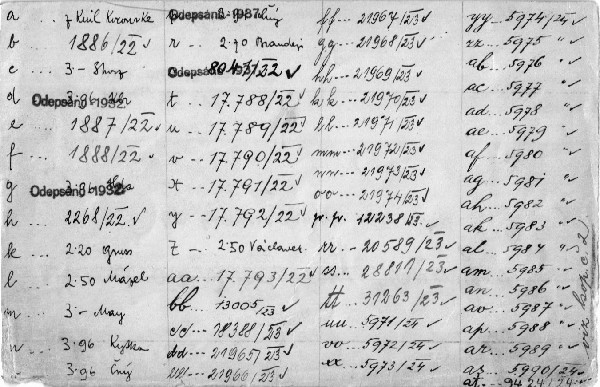 a ... z Kmil
b ... 1886/22
c ... 3.-
d Odepsáno 1932
e ... 1887/22
f ... 1888/22
g Odepsáno 1932
h ... 2268/22
k ... 2.20
l ... 2.50 Mázel
m ... 3.- May
n ... 3.96
o ... 3.96
p Odepsáno 1937
r ... 2.70
t ... 17.788/22
u ... 17.789/22
v ... 17.790/22
x ... 17.791/22
y ... 17.792/22
z - 2.50 Václavek
aa ... 17.793/22
bb ... 13005/23
cc ... 18388/23
dd ... 21965/23
ee ... 21966/23
ff ... 21967/23
gg ... 21968/23
hh ... 21969/23
kk ... 21970/23
ll ... 21971/23
mm ... 21972/23
nn ... 21973/23
oo ... 21974/23
pr. pr. 12238/23
rr - 20589/23
ss. - 28817/23
tt 31263/23
uu ... 5971/24
vv ... 5972/24
xx ... 5973/24
yy ... 5974/24
zz ... 5975 "
ab ... 5976 "
ac ... 5977 "
ad ... 5978 "
ae ... 5979 "
af ... 5980 "
ag ... 5981 "
ah ... 5982 "
ak ... 5983 "
al ... 5984 "
am ... 5985 "
an ... 5986 "
ao ... 5987 "
ap ... 5988 "
ar ... 5989 "
as ... 5990/24
at. 9424/24
viz kop. č. 2)